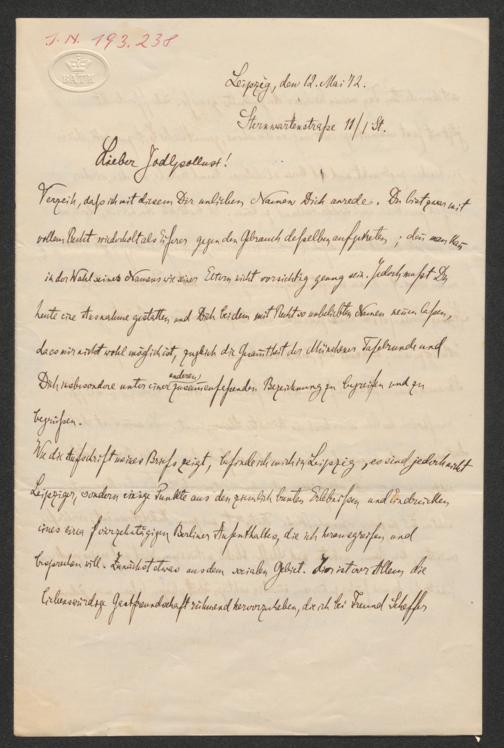 J. N. 193.238
BATH
Leipzig, den 12. Mai 72.
Sternwartenstraße 11/I St.
Lieber Jodlpollusk!
Verzeih, daß ich mit diesem Dir unlieben Namen Dich anrede. Du bist zwar mit
vollem Recht wiederholt als Eiferer gegen den Gebrauch desselben aufgetreten; denn man kann
in der Wahl seines Namens wie seiner Eltern nicht vorsichtig genug sein. Jedoch mußt Du
heute eine Ausnahme gestatten und Dich bei dem mit Recht so unbeliebten Namen nennen lassen,
da es mir nicht wohl möglich ist, zugleich die Gesamtheit der Münchner Tafelrunde und
Dich insbesondere unter einer anderen zusammenfassenden Bezeichnung zu begreifen und zu
begrüßen.
Wie die Aufschrift meines Briefs zeigt, befinde ich mich in Leipzig, es sind jedoch nicht
Leipziger, sondern einige Punkte aus den ziemlich bunten Erlebnissen und Eindrücken
eines vierzehntägigen Berliner Aufenthaltes, die ich herausgreifen und
besprechen will. Zunächst etwas aus dem socialen Gebiet. Hier ist vor Allem die
liebenswürdige Gastfreundschaft rühmend hervorzuheben, die ich bei Freund Scheffer